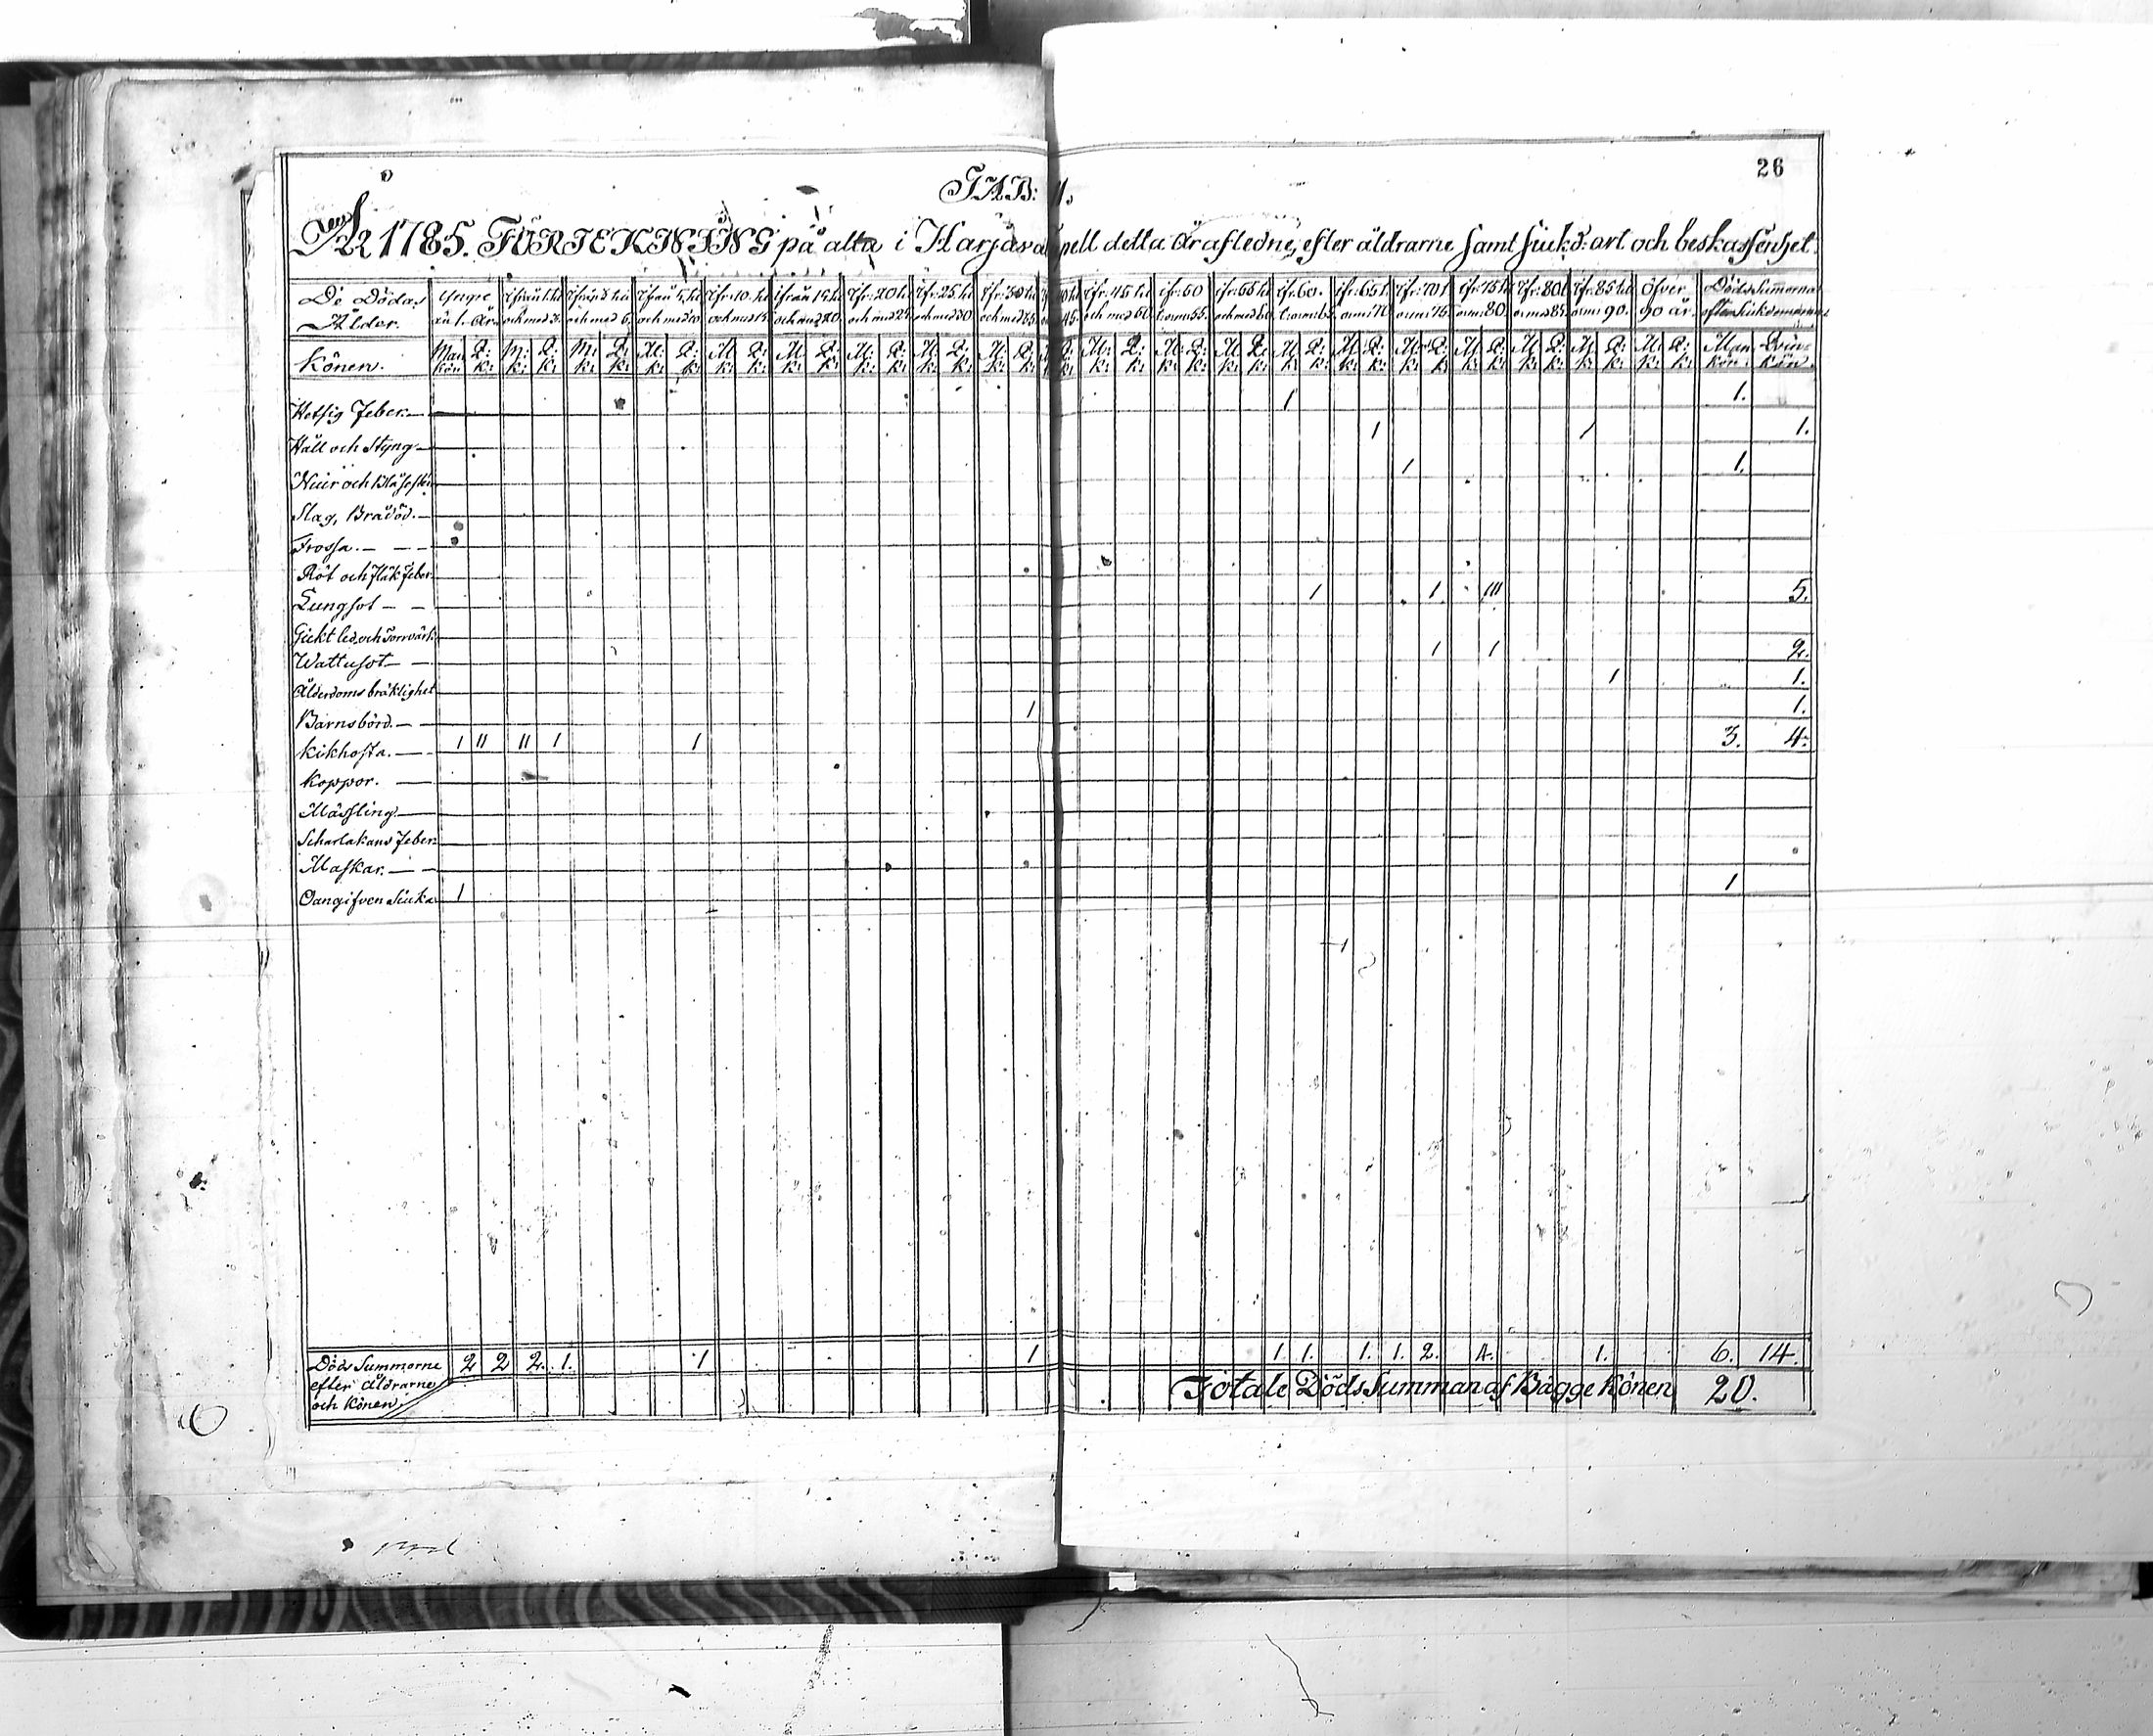 26
TAB: II.
År 1785. FÖRTEKNING på alla i Harjavalta Capell detta år afledne, efter åldrarne samt siukd: art och beskaffenhet.
De Dödas Ålder. Yngre än 1. år ifrån 1 til och med 3. ifrån 3 til och med 5 ifrån 5 til och med 10 ifr: 10. til och med 15 ifrån 15 til och med 20. ifr: 20 til och med 25 ifr: 25 til och med 30 ifr: 30 til och med 35 40 til 45 ifr: 45 til och med 50 ifr: 50 t. o. m: 55. ifr: 55 til och med 60 ifr: 60. t. o. m: 65 ifr: 65 t. o. m: 70 ifr: 70 t o. m: 75. ifr: 75 til o. m: 80 ifr: 80 t o. m: 85 ifr: 85 til o. m: 90. öfver 90 år. Döds Summorna efter Siukdomarna
Könen. Man kön Q: k: M: k: Q: k: M: k: Q: k: M: k: Q: k: M: k: Q: k: M: k: Q: k: M: k: Q: k: M: k: Q: k: M: k: Q: k: Q: k: M: k: Q: k: M: k: Q: k: M: k: Q: k: M: k: Q: k: M: k: Q: k: M: k: Q: k: M: k: Q: k: M: k: Q: k: M: k: Q: k: M: k: Q: k: Man kön. Qvin kön.
Hetsig Feber. 1 1.
Håll och Styng 1 1 1.
1 1.
Slag, Brådöd.
Frossa.
Röt och Fläk Feber
Lungsot 1 1 III 5.
Gickt led. och Torrvärk
Wattusot 1 1 2.
Ålderdoms bräklighet 1 1.
Barnsbörd. 1 1.
Kikhosta. I II II I 1 3. 4.
Koppor.
Mässling.
Scharlakans Feber
Maskar.
Oangifven Siuka 1 1
Döds Summorne efter åldrarne och Könen. 2 2 2. 1. 1 1 1. 1. 1. 1. 2. 4. 1. 6. 14.
Totale Döds Summan af Bägge Könen 20.